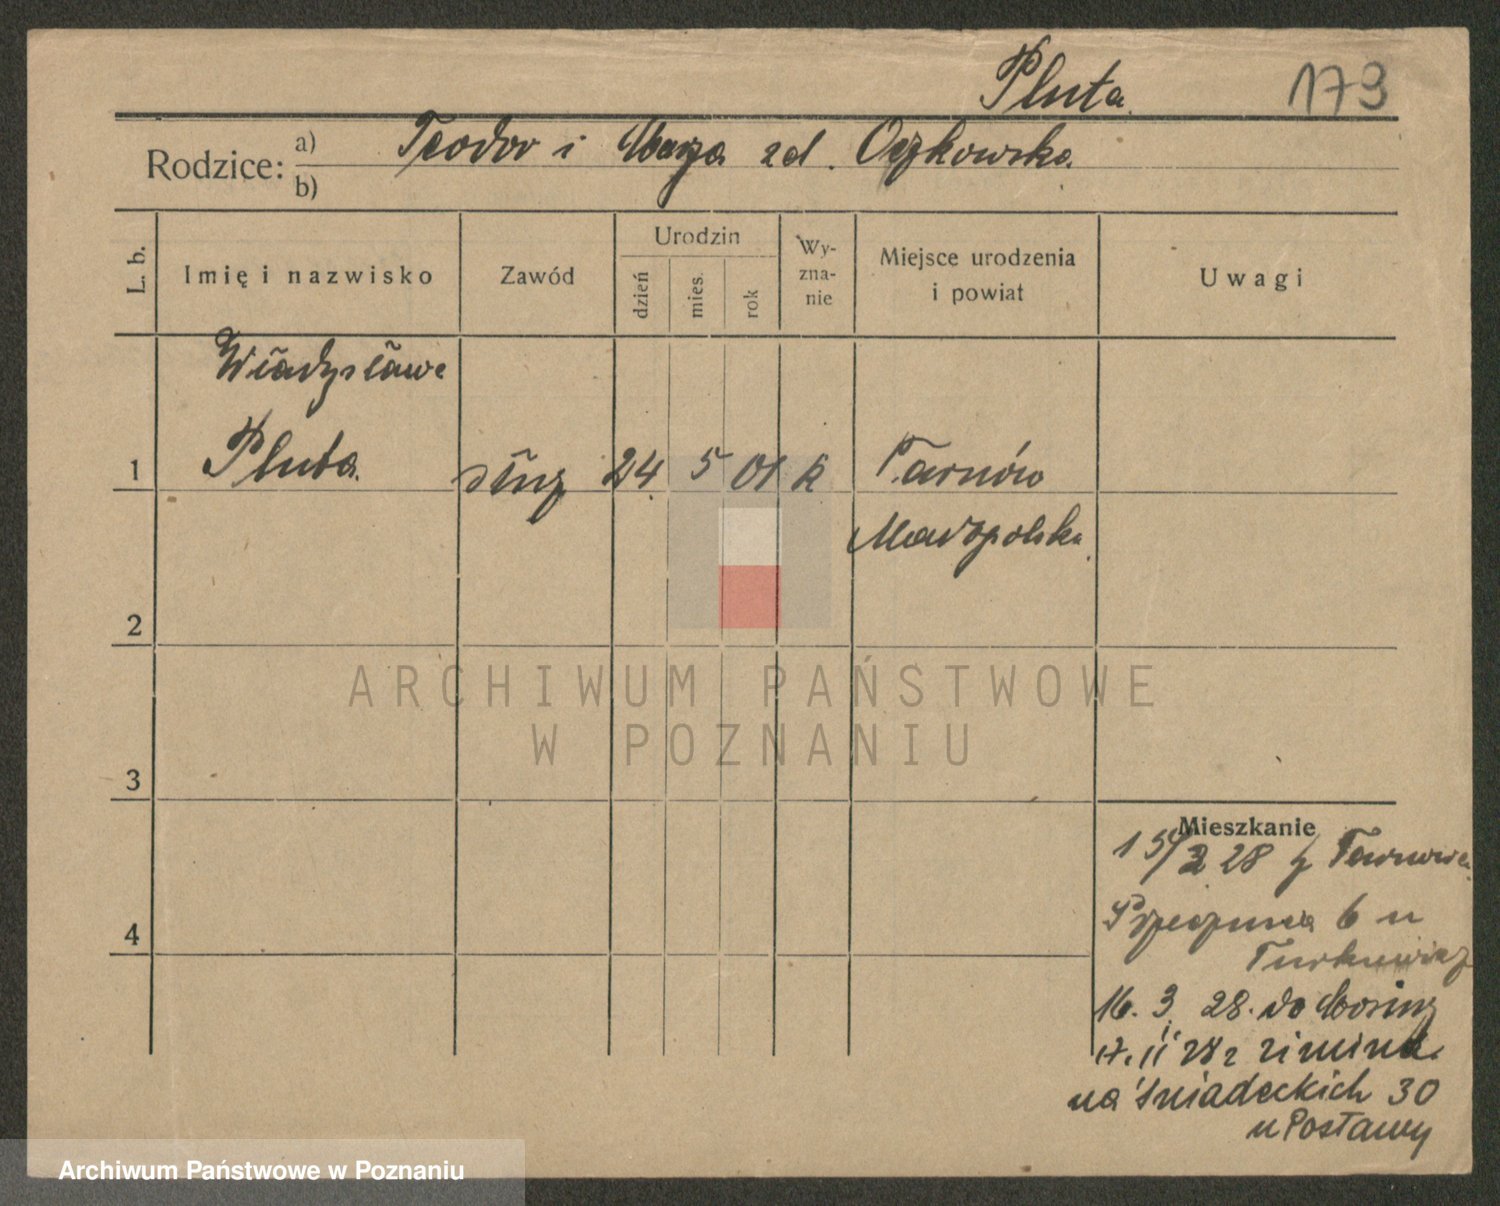 Pluta 173
Rodzice: a) Teodor i Marja z d. Oczkowska
b)
L. b. Imię i nazwisko Zawód Urodzin dzień mies. rok Wy-zna-nie Miejsce urodzenia i powiat Uwagi
Władysława
1 Pluta służ 24 5 01 k Tarnów
Małopolska
2
ARCHIWUM PAŃSTWOWE
W POZNANIU
3
Mieszkanie
15/2 28 z Tarnowa
4
6 u
16. 3. 28. do
17. 11 28 z
na Śniadeckich 30
u Postawy
Archiwum Państwowe w Poznaniu